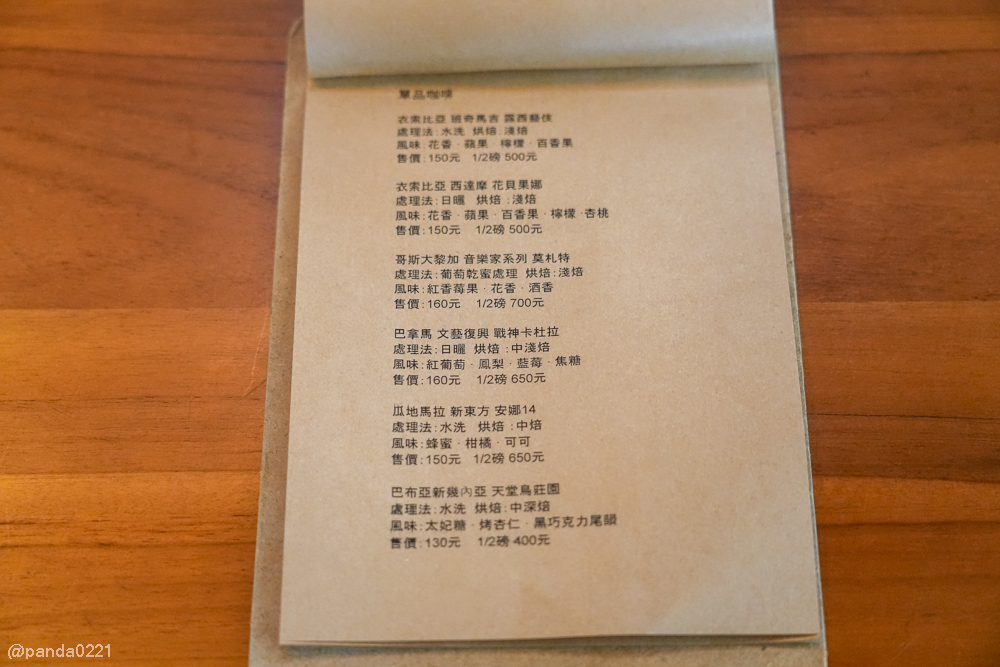 單品咖啡
衣索比亞 班奇馬吉 露西藝伎
處理法:水洗 烘焙:淺焙
風味:花香‧蘋果‧檸檬‧百香果
售價:150元 1/2磅 500元
衣索比亞 西達摩 花貝果娜
處理法:日曬 烘焙:淺焙
風味:花香‧蘋果‧百香果‧檸檬‧杏桃
售價:150元 1/2磅 500元
哥斯大黎加 音樂家系列 莫札特
處理法:葡萄乾蜜處理 烘焙:淺焙
風味:紅香莓果‧花香‧酒香
售價:160元 1/2磅 700元
巴拿馬 文藝復興 戰神卡杜拉
處理法:日曬 烘焙:中淺焙
風味:紅葡萄‧鳳梨‧藍莓‧焦糖
售價:160元 1/2磅 650元
瓜地馬拉 新東方 安娜14
處理法:水洗 烘焙:中焙
風味:蜂蜜‧柑橘‧可可
售價:150元 1/2磅 650元
巴布亞新幾內亞 天堂鳥莊園
處理法:水洗 烘焙:中深焙
風味:太妃糖‧烤杏仁‧黑巧克力尾韻
售價:130元 1/2磅 400元
@panda0221